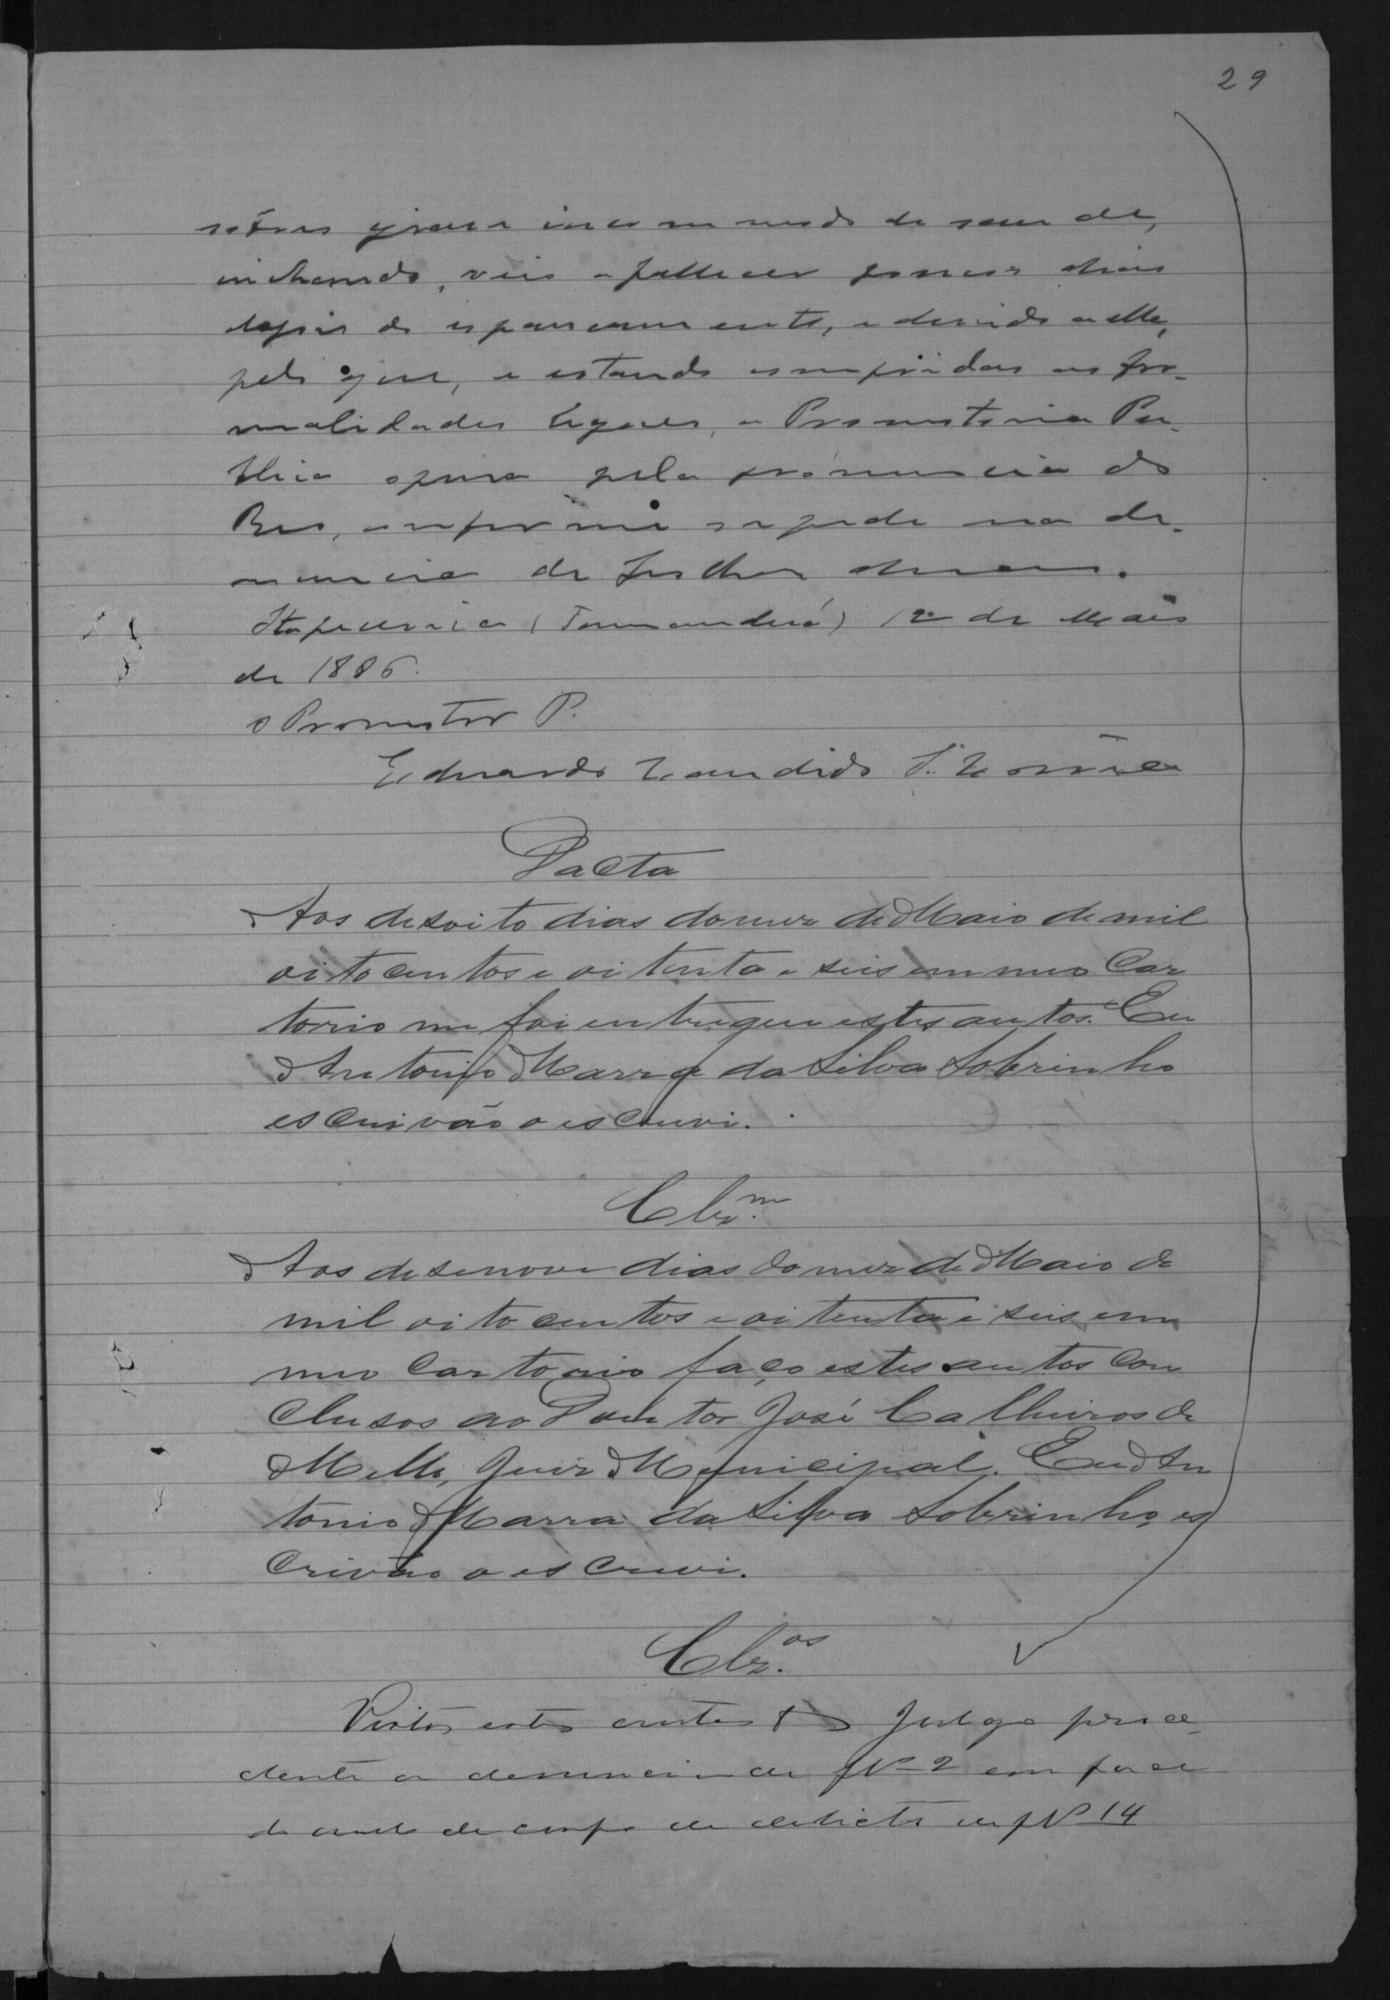 29
grave incommodo de saude,
inchando, veio a fallecer poucos dias
depois do espancamento, e devido a elle,
pelo que, e estando cumpridas as for-
malidades legaes, a Promotoria Pu-
blica opina pela pronuncia do
Reo, conforme se pede na de-
nuncia de folhas duas.
Itapecerica (Tamanduá) 12 de Maio
de 1886.
o Promotor P.
Eduardo Candido
Dacta
Aos desoito dias do mez de Maio de mil
oitocentos e oitenta e seis em meu Car
torio me foi entregue estes autos. Eu
Antonio Marra da Silva Sobrinho
escrivão o escrevi.
Clzm.
Aos desenove dias do mez de Maio de
mil oitocentos e oitenta e seis em
meu Cartorio faço estes autos Con
clusos ao Doutor José Calheiros de
Mello, Juiz Municipal. Eu An
tonio Marra da Silva Sobrinho, es
crivão o escrevi.
Clz.os
Vistos estes autos Julgo proce-
dente a denuncia de fl 2 em face
do auto de corpo de delicto de fl 14